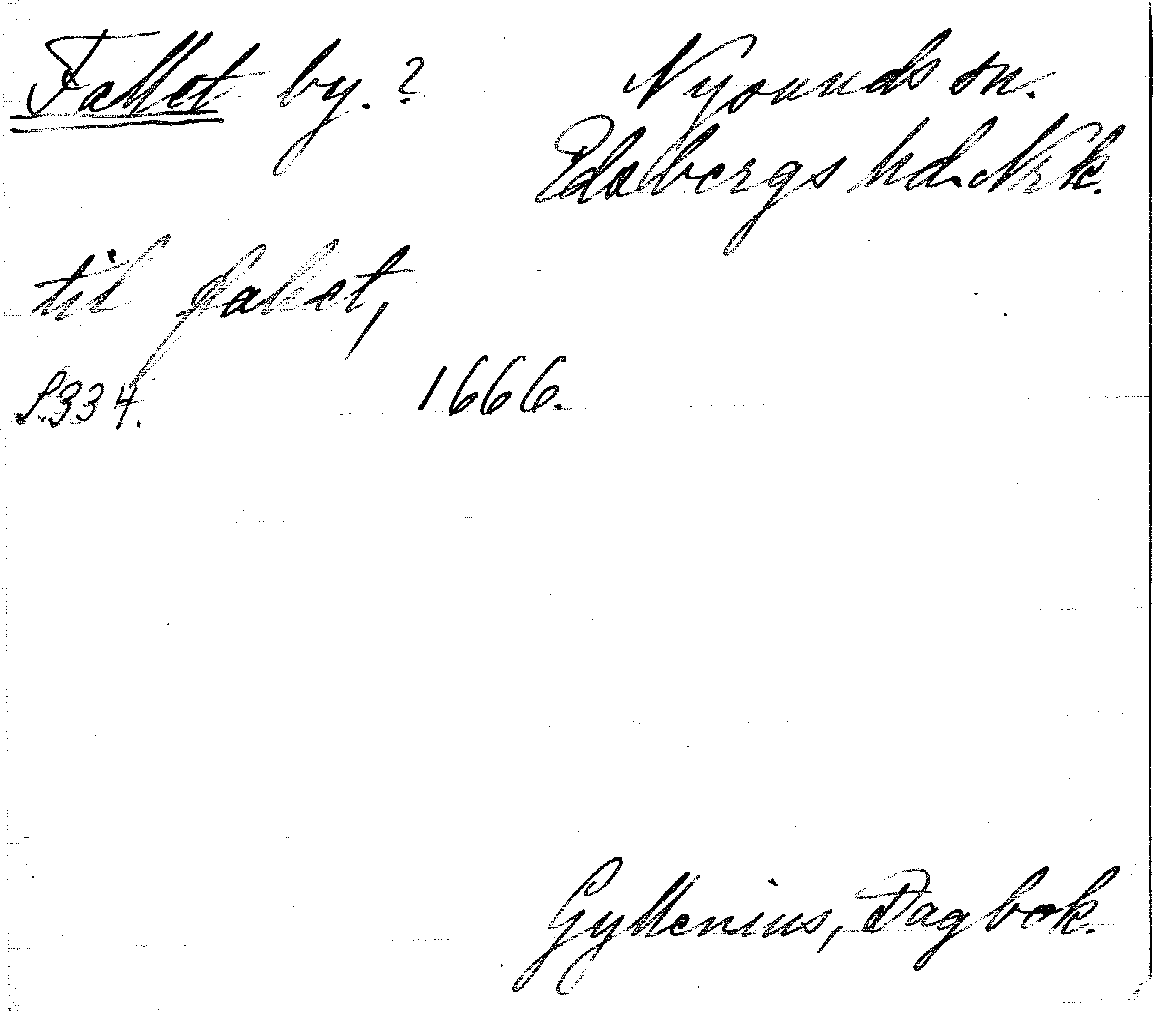 Fallet by. ? Nysunds sn.
Edsbergs hd. Nrk.
til fallet,
S. 334. 1666.
Gyllenius, Dagbok.